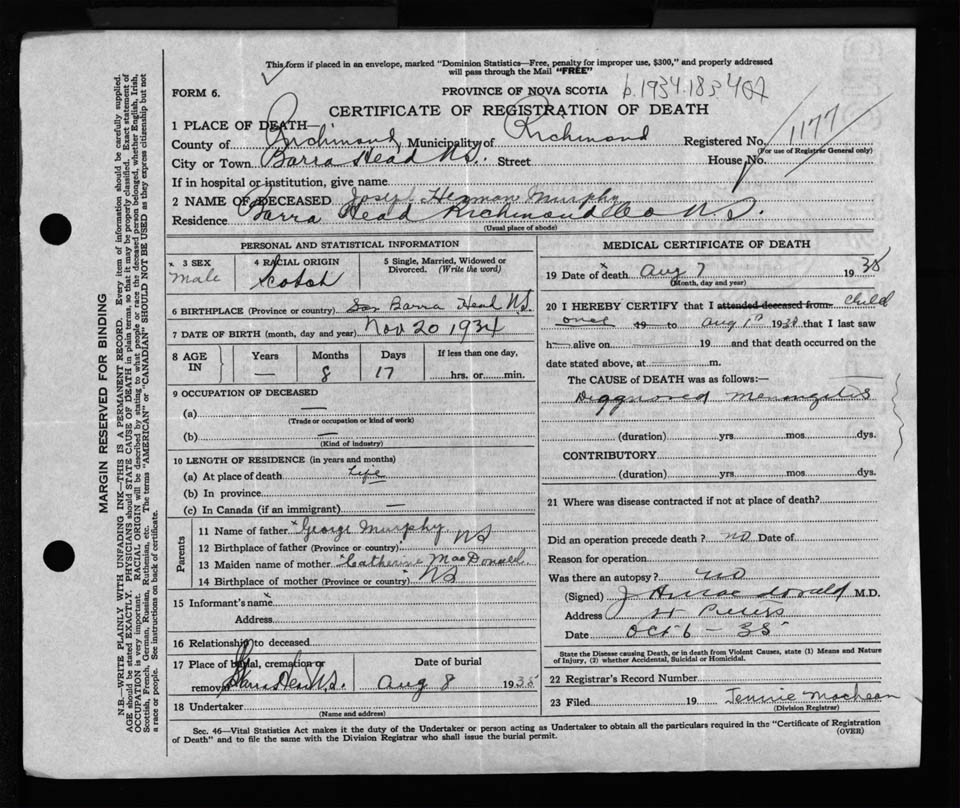 This form if placed in an envelope, marked "Dominion Statistics—Free, penalty for improper use, $300," and properly addressed
will pass through the Mail "FREE"
FORM 6.
PROVINCE OF NOVA SCOTIA
CERTIFICATE OF REGISTRATION OF DEATH
1 PLACE OF DEATH—
County of Richmond Municipality of Richmond Registered No. 1177
(For use of Registrar General only)
City or Town Barra Head N.S. Street House No.
If in hospital or institution, give name
2 NAME OF DECEASED Joseph Herman Murphy
Residence Barra Head Richmond Co N.S.
(Usual place of abode)
PERSONAL AND STATISTICAL INFORMATION
3 SEX Male
4 RACIAL ORIGIN Scotch
5 Single, Married, Widowed or Divorced. (Write the word)
6 BIRTHPLACE (Province or country) Barra Head N.S.
7 DATE OF BIRTH (month, day and year) Nov 20 1934
8 AGE IN Years — Months 8 Days 17 If less than one day, hrs. or min.
9 OCCUPATION OF DECEASED
(a) —
(Trade or occupation or kind of work)
(b) —
(Kind of industry)
10 LENGTH OF RESIDENCE (in years and months)
(a) At place of death Life
(b) In province
(c) In Canada (if an immigrant) —
Parents
11 Name of father George Murphy
12 Birthplace of father (Province or country) NS
13 Maiden name of mother Catherine MacDonald
14 Birthplace of mother (Province or country) NS
15 Informant's name
Address
16 Relationship to deceased
17 Place of burial, cremation or removal Barra Head N.S. Date of burial Aug 8 1935
18 Undertaker
(Name and address)
MEDICAL CERTIFICATE OF DEATH
19 Date of death Aug 7 1935
(Month, day and year)
20 I HEREBY CERTIFY that I attended deceased from child
once 19 to Aug 1st 1935 that I last saw
h alive on 19 and that death occurred on the
date stated above, at m.
The CAUSE of DEATH was as follows:—
Diagnosed Meningitis
(duration) yrs. mos. dys.
CONTRIBUTORY
(duration) yrs. mos. dys.
21 Where was disease contracted if not at place of death?
Did an operation precede death? no Date of
Reason for operation
Was there an autopsy? no
(Signed) J H MacDonald M.D.
Address St Peters
Date Oct 6 - 35
State the Disease causing Death, or in death from Violent Causes, state (1) Means and Nature
of Injury, (2) whether Accidental, Suicidal or Homicidal.
22 Registrar's Record Number
23 Filed 19 Jennie MacLean
(Division Registrar)
Sec. 46—Vital Statistics Act makes it the duty of the Undertaker or person acting as Undertaker to obtain all the particulars required in the "Certificate of Registration
of Death" and to file the same with the Division Registrar who shall issue the burial permit.
(OVER)
MARGIN RESERVED FOR BINDING
N.B.—WRITE PLAINLY WITH UNFADING INK—THIS IS A PERMANENT RECORD. Every item of information should be carefully supplied.
AGE should be stated EXACTLY. PHYSICIANS should STATE CAUSE OF DEATH in plain terms, so that it may be properly classified. Exact statement of
OCCUPATION is very important. RACIAL ORIGIN will be described by stating to what people or race the deceased person belonged, whether English, Irish,
Scottish, French, German, Russian, Ruthenian, etc. The terms "AMERICAN" or "CANADIAN" SHOULD NOT BE USED as they express citizenship but not
a race or people. See instructions on back of certificate.